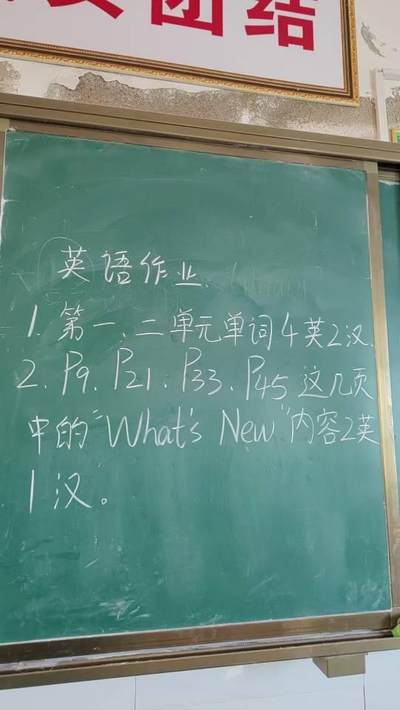 团结
英语作业.
1. 第一、二单元单词4英2汉.
2. P9. P21. P33. P45 这几页
中的“What's New”内容2英
1汉。